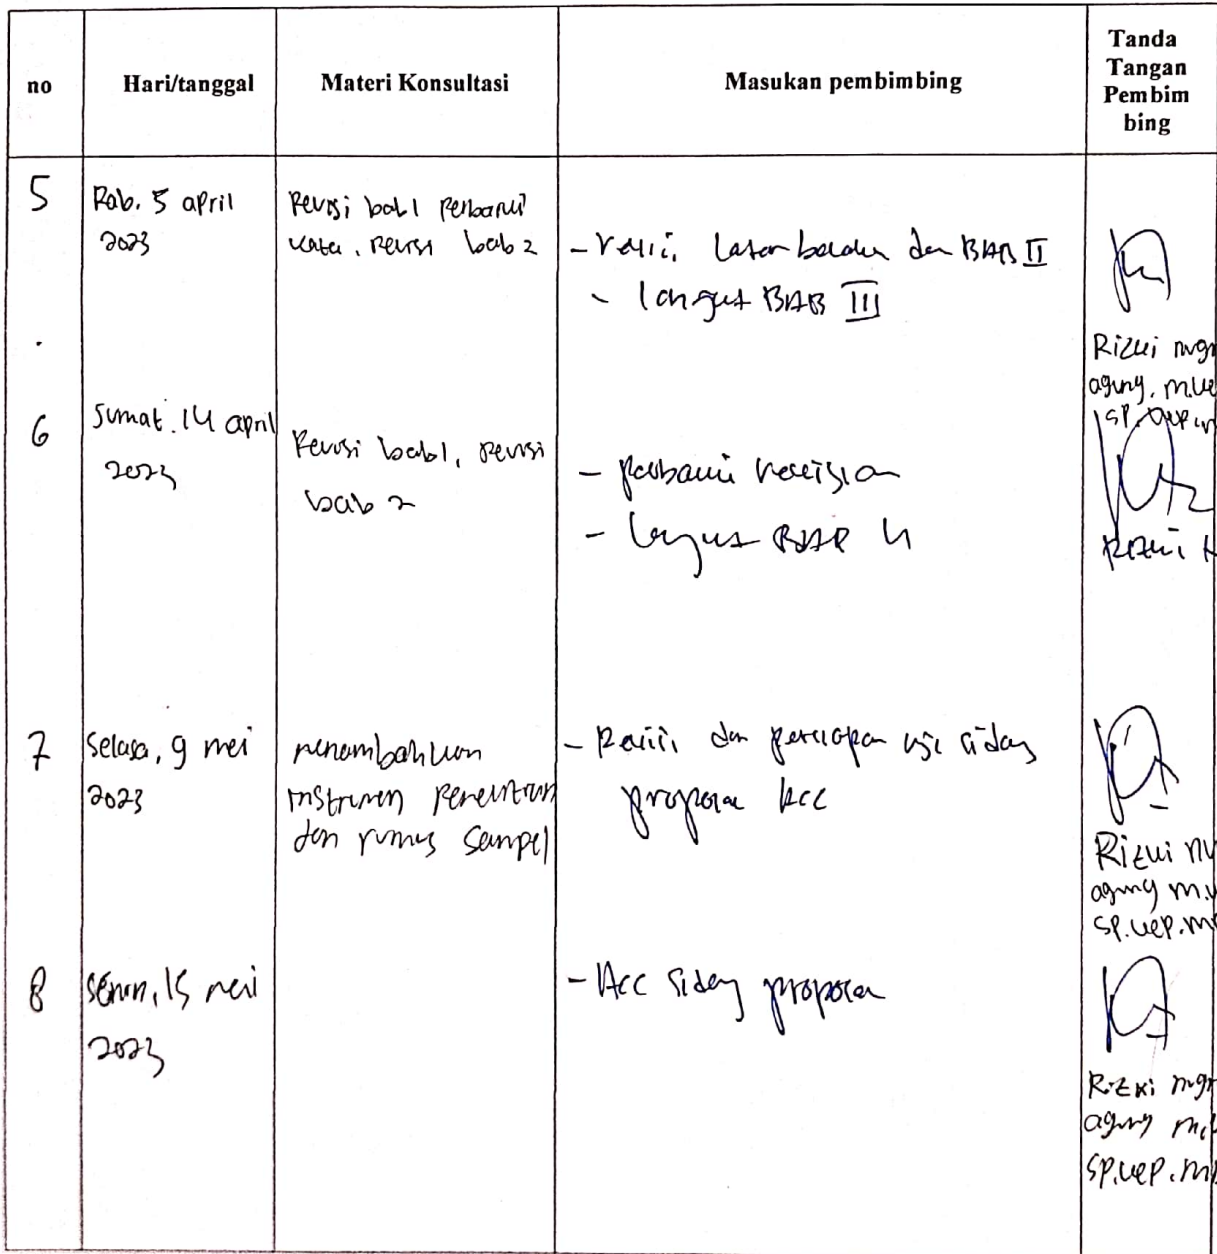 no
Hari/tanggal
Materi Konsultasi
Masukan pembimbing
Tanda
Tangan
Pembim
bing
5
Rab. 5 april
2023
Revisi bab 1 perbarui
kata. revisi bab 2
- revisi latar belakang dan BAB II
- lanjut BAB III
Rizki
agung.
6
Jumat. 14 april
2023
Revisi bab 1, revisi
bab 2
- perbaiki
- lanjut BAB 4
Rizki
7
Selasa, 9 mei
2023
menambahkan
instrumen penelitian
dan rumus sampel
- Revisi dan persiapan uji sidang
proposal Acc
Rizki
agung
sp.kep.
8
Senin, 15 mei
2023
- Acc sidang proposal
Rizki
agung
sp.kep.